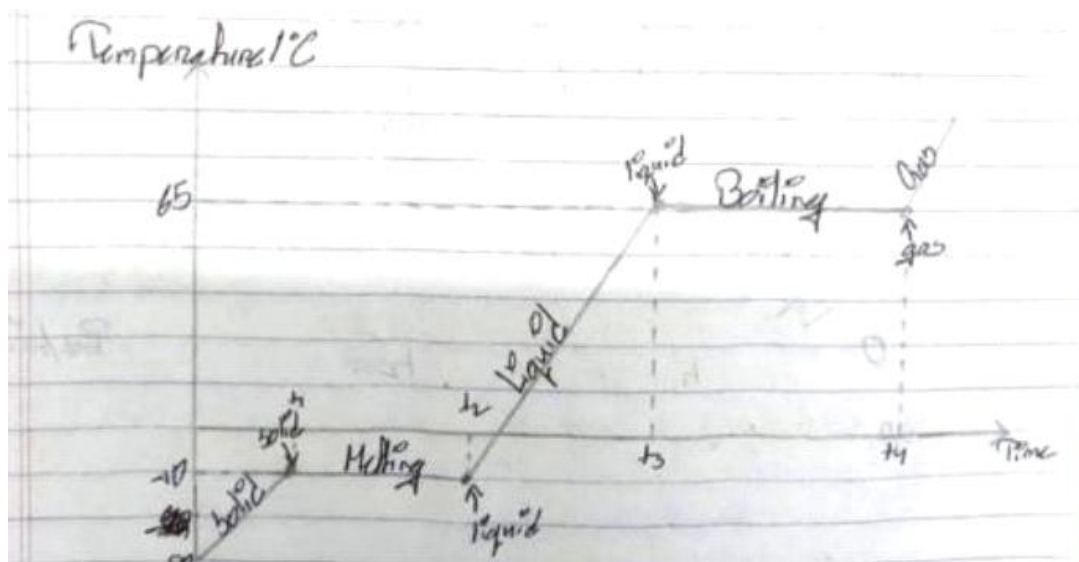 Temperature/°C
liquid
Gas
65
Boiling
gas
Liquid
t2
solid
t3
t4
Time
-10
Melting
solid
liquid